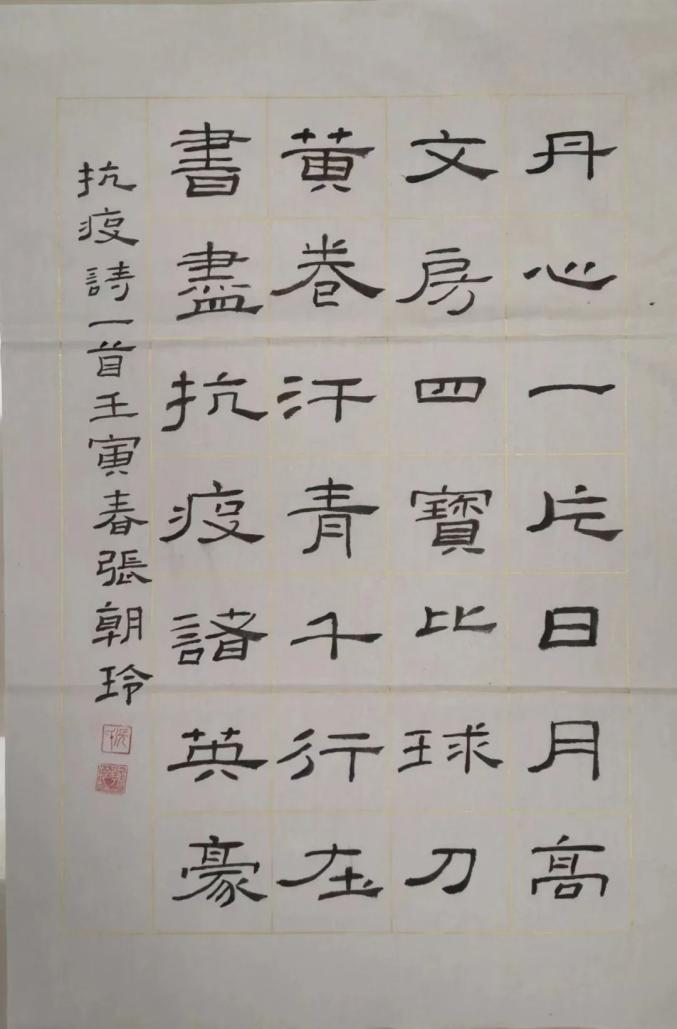 丹心一片日月高
文房四寶比球刀
黄卷汗青千行在
書盡抗疫諸英豪
抗疫詩一首壬寅春張朝玲